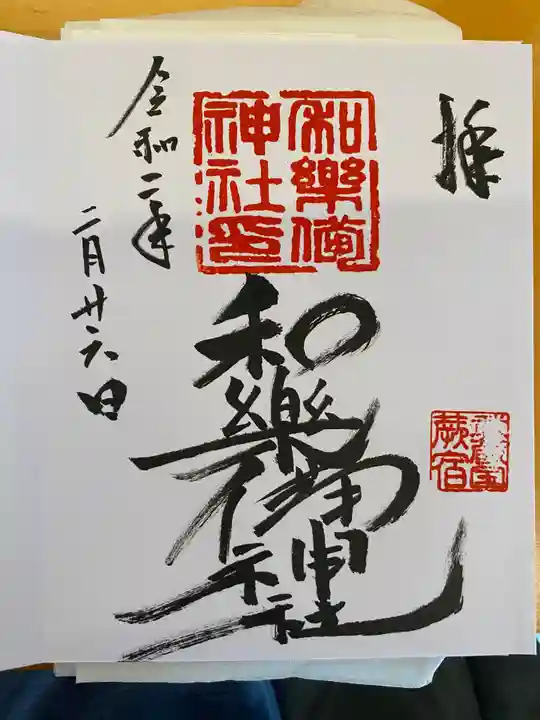 拝
武蔵国
蕨宿
和樂備
神社之印
和樂備神社
令和二年
二月廿六日